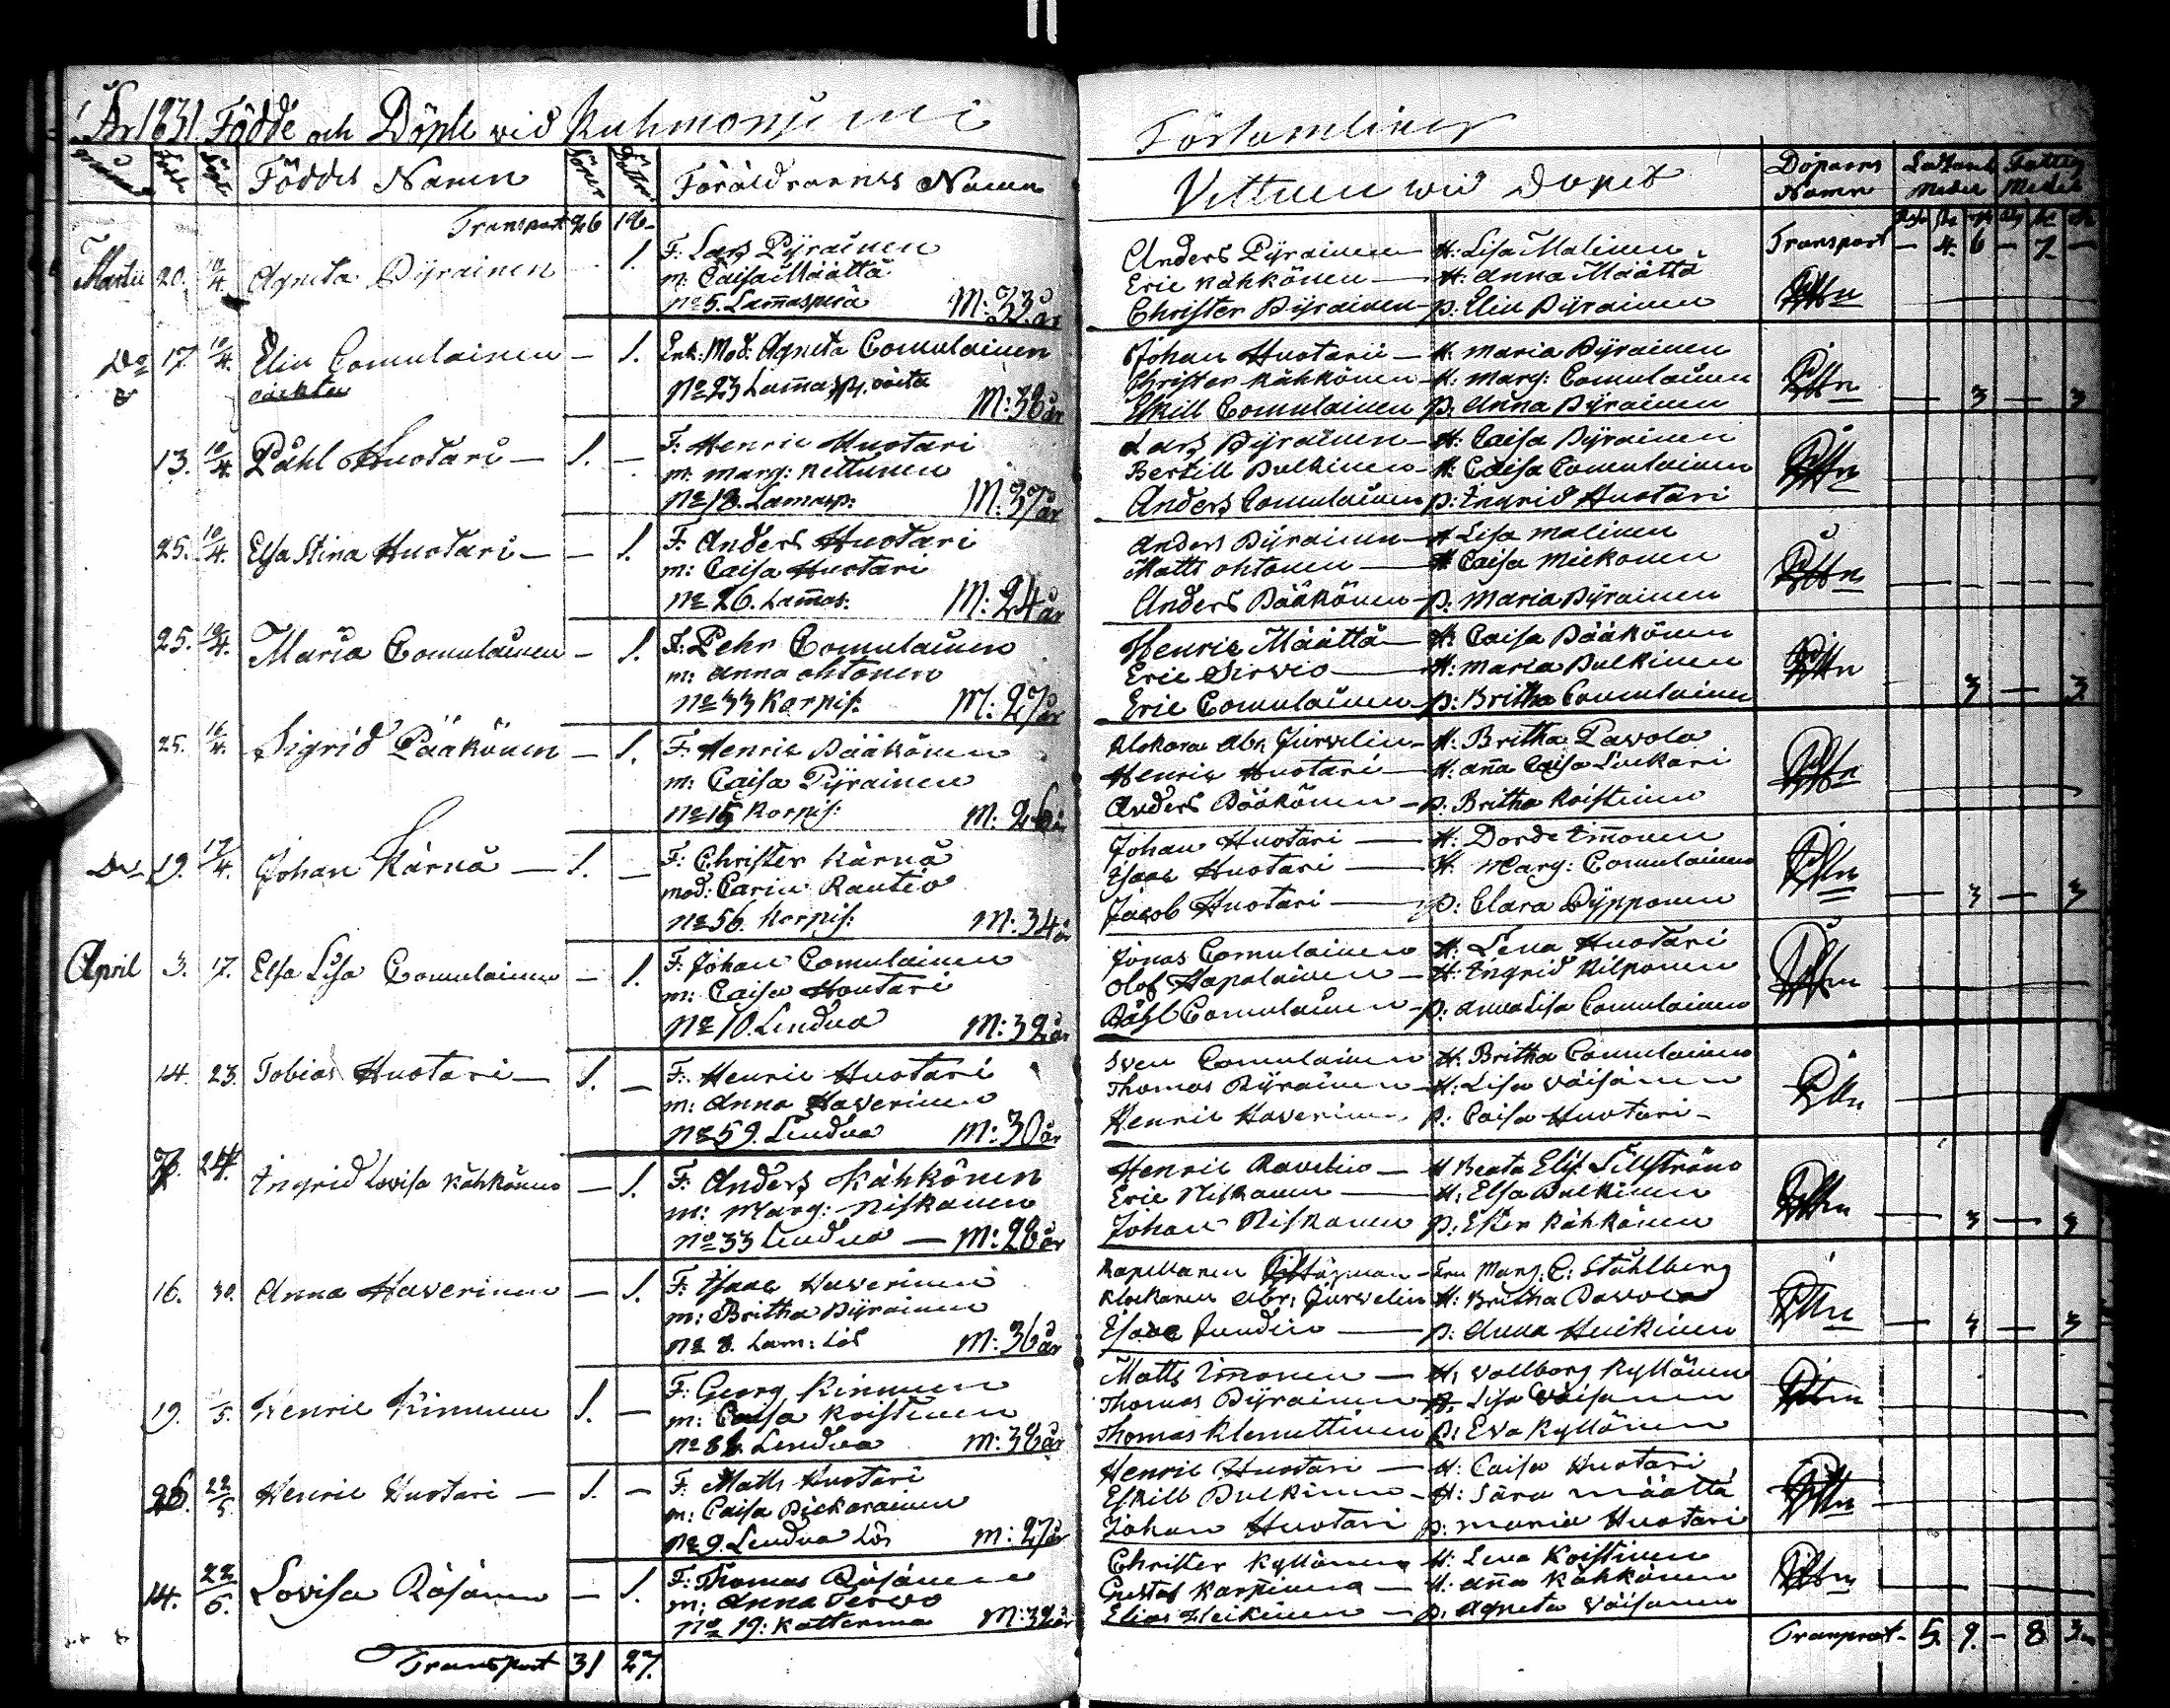 År 1831. Födde och Döpte wid Kuhmoniemi
Församling
Månad Född Döpt Föddes Namn Söner Döttrar Föräldrarnes Namn
Vittnen wid Dopet Döparens Namn Medel Fattig Medel
Transport 26 19
Transport — 4. 6 — 7 —
Martii 20. 10/4. Agneta Pyrainen — 1. F: Lars Pyrainen
m: Caisa Määttä
No 5. Lam̄asperä M: 33 år
Anders Pyrainen — H: Lisa Malinen
Eric Kähkönen — H: Anna Määttä
Christer Pyrainen — p: Elin Pyrainen
Do 17. 10/4. Elin Comulainen — 1. Enk: Mod: Agneta Comulainen
oäckta
No 23 Lam̄asp. M: 38 år
Johan Huotari — H: Maria Pyrainen
Christer Kähkönen — H: Marg: Comulainen
Eskill Comulainen p: Anna Pyrainen — 3 — 3
13. 10/4. Påhl Huotari — 1. — F: Henric Huotari
m: Marg: Kettunen
No 18. Lamasp: M: 37 år
Lars Pyrainen — H: Caisa Pyrainen
Bertill Pulkinen — H: Caisa Comulainen
Anders Comulainen p: Ingrid Huotari
25. 10/4. Elsa Stina Huotari — — 1. F: Anders Huotari
m: Caisa Huotari
No 26. Lam̄as: M: 24 år
Anders Pyrainen — H Lisa Malinen
Matts Ohtonen — H Caisa Mickonen
Anders Pääkönen — p: Maria Pyrainen
25. 10/4. Maria Comulainen — 1. F: Pehr Comulainen
m: Anna Ohtonen
No 33 Korpis: M: 27 år
Henric Määttä — H: Caisa Pääkönen
Eric Sirvio — H: Maria Pulkinen
Eric Comulainen p: Britha Comulainen — 3 — 3
25. Sigrid Pääkönen — 1. F: Henric Pääkönen
m: Caisa Pyrainen
No 15 Korpis: M: 26 år
Klokaren Abr. — H: Britha Pavola
Henric Huotari — H: An̄a Caisa
Anders Pääkönen — p: Britha Koistinen
Do 19. 17/4. Johan Kärnä — 1. — F: Christer Kärnä
mod: Carin Rautio
No 56. Korpis: M: 34 år
Johan Huotari — H: Dorde Im̄onen
Isaac Huotari — H: Marg: Comulainen
Jacob Huotari — p: Clara Pypponen — 3 — 3
April 3. 17. Elsa Lisa Comulainen — 1. F: Johan Comulainen
m: Caisa Huotari
No 10. Lendua M: 32 år
Jonas Comulainen H: Lena Huotari
Olof Hapalainen — H: Ingrid Kilponen
Påhl Comulainen — p: Anna Lisa Comulainen
14. 23. Tobias Huotari — 1. — F: Henric Huotari
m: Anna Haverinen
No 59. Lendua M: 30 år
Sven Comulainen H: Britha Comulainen
Thomas Pyrainen — H: Lisa Väisänen
Henric Haverinen p: Caisa Huotari —
24. Ingrid Lovisa Kähkönen — 1. F: Anders Kähkönen
m: Marg: Niskanen
No 33 Lendua — M: 28 år
Henric — H Beata Elis:
Eric Niskanen — H: Elsa Pulkinen
Johan Niskanen p: Ester Kähkönen — 3 — 3
16. 30. Anna Haverinen — 1. F: Isaac Haverinen
m: Britha Pyrainen
No 8. Lam: M: 36 år
Kapellanen — Fru Marg: C: Ståhlberg
Klockaren Abr: H: Britha Pavola
Esaac — p: Anna Heikinen — 3 — 3
19. /5. Henric Kinnunen 1. — F: Georg Kinnunen
m: Caisa Koistinen
No 88. Lendua M: 38 år
Matts Im̄onen — H: Vallborg Kyllönen
Thomas Pyrainen — H. Lisa Väisänen
Thomas Klemettinen p: Eva Kyllönen
26. 22/5. Henric Huotari — 1. — F: Matts Huotari
m: Caisa Pickarainen
No 9. Lendua M: 27 år
Henric Huotari — H: Caisa Huotari
Eskill Pulkinen — H: Sara Määttä
Johan Huotari p: Maria Huotari
14. 22/5. Lovisa Räsänen — 1. F: Thomas Räsänen
m: Anna Tervo
No 19: Katterma M: 32 år
Christer Kyllönen H: Lena Koistinen
Gustaf Karppinen — H: An̄a Kähkönen
Elias Heikinen — p: Agneta Väisänen
Transport 31 27.
Transport — 5. 9. — 8 3